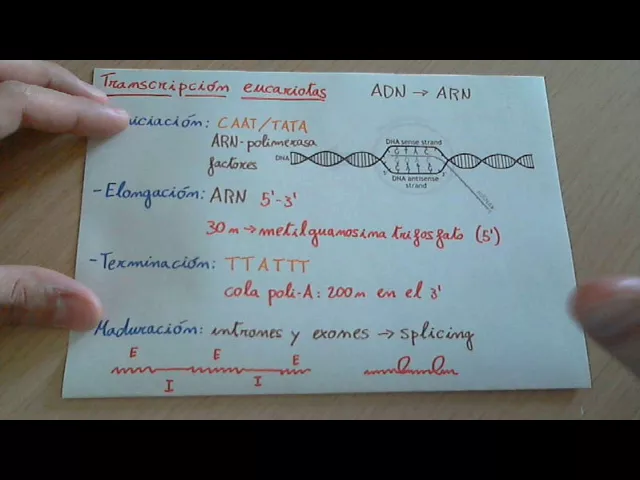 Transcripción eucariotas
ADN → ARN
iciación: CAAT/TATA
ARN-polimerasa
factores
DNA
DNA sense strand
DNA antisense
strand
- Elongación: ARN 5'-3'
30 n → metilguanosina trifosfato (5')
- Terminación: TTATTT
cola poli-A: 200 n en el 3'
Maduración: intrones y exones → splicing
E E E
I I